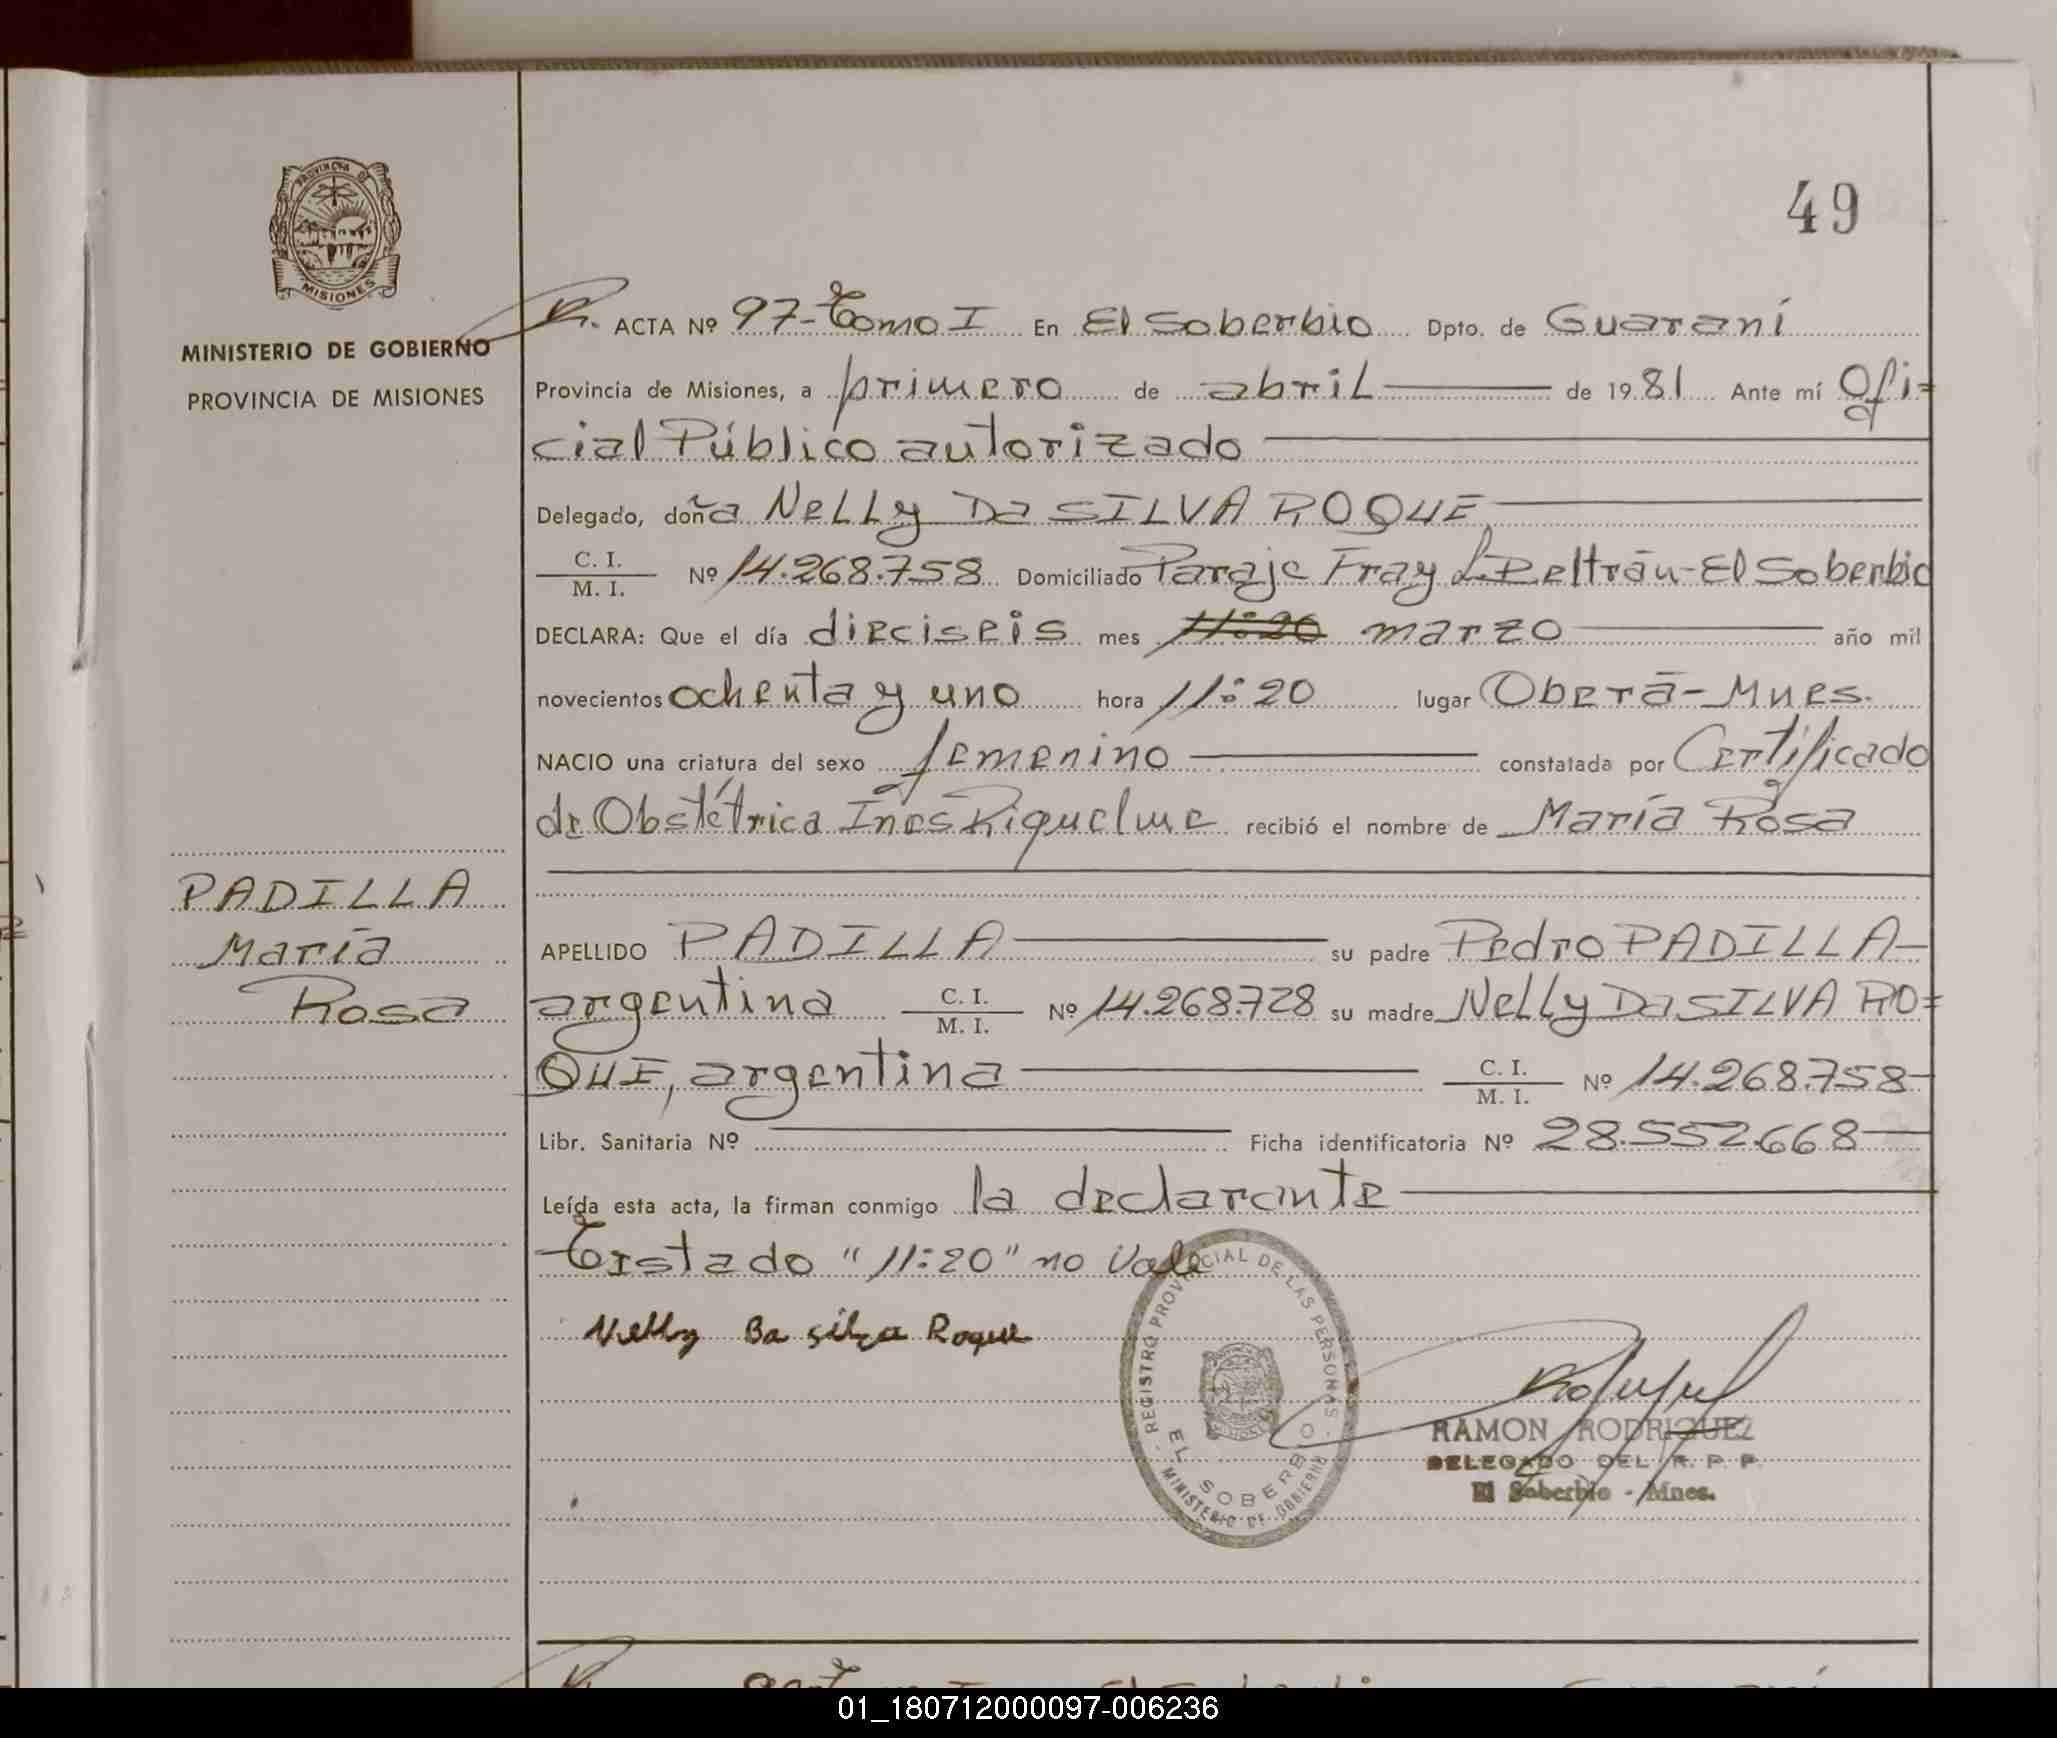 49
PROVINCIA DE
MISIONES
MINISTERIO DE GOBIERNO
PROVINCIA DE MISIONES
ACTA Nº 97-Tomo I En El Soberbio Dpto. de Guaraní
Provincia de Misiones, a primero de abril de 1981 Ante mí Ofi=
cial Público autorizado
Delegado, doña Nelly Da SILVA ROQUE
C. I.
M. I. Nº 14.268.758 Domiciliado Paraje Fray L. Beltrán-El Soberbio
DECLARA: Que el día dieciseis mes 11:20 marzo año mil
novecientos ochenta y uno hora 11:20 lugar Oberá-Mnes.
NACIO una criatura del sexo femenino constatada por Certificado
de Obstétrica Ines Riquelme recibió el nombre de María Rosa
PADILLA
María
Rosa
APELLIDO PADILLA su padre Pedro PADILLA
argentina C. I.
M. I. Nº 14.268.728 su madre Nelly Da SILVA RO=
QUE, argentina C. I.
M. I. Nº 14.268.758
Libr. Sanitaria Nº Ficha identificatoria Nº 28.552.668
Leída esta acta, la firman conmigo la declarante
Testado "11:20" no Vale
Nelly Da silva Roque
REGISTRO PROVINCIAL DE LAS PERSONAS
EL SOBERBIO
MINISTERIO DE GOBIERNO
RAMON RODRIGUEZ
DELEGADO DEL R. P. P.
El Soberbio - Mnes.
01_180712000097-006236